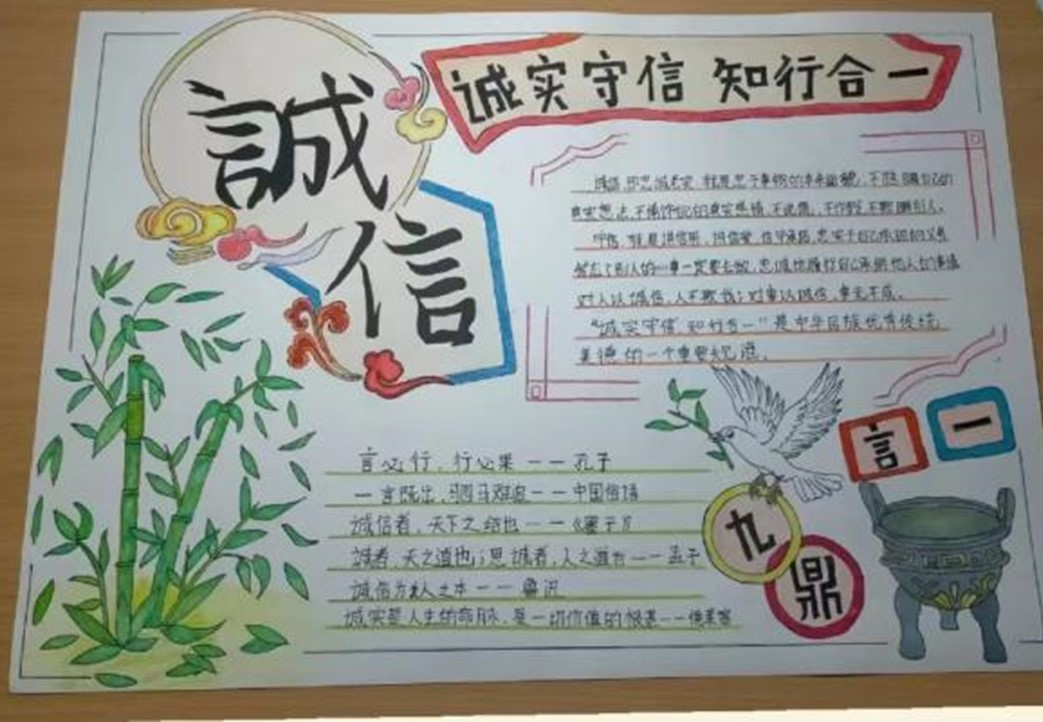 誠
信
诚实守信 知行合一
诚信,即忠诚老实,就是忠于事物的本来面貌,不隐瞒自己的
真实想法,不掩饰自己的真实感情,不说谎,不作假,不欺瞒别人。
守信,就是讲信用,讲信誉,信守承诺,忠实于自己承担的义务
答应了别人的事一定要去做,忠诚地履行自己承担
对人以诚信,人不欺我;对事以诚信,事无不成。
“诚实守信,知行合一”是中华民族优秀传统
美德的一个重要规范。
言
一
九
鼎
言必行,行必果——孔子
一言既出,驷马难追——中国俗语
诚信者,天下之结也——《墨子》
诚者,天之道也;思诚者,人之道也——孟子
诚信为人之本——鲁迅
诚实是人生的命脉,是一切价值的根基——德莱塞